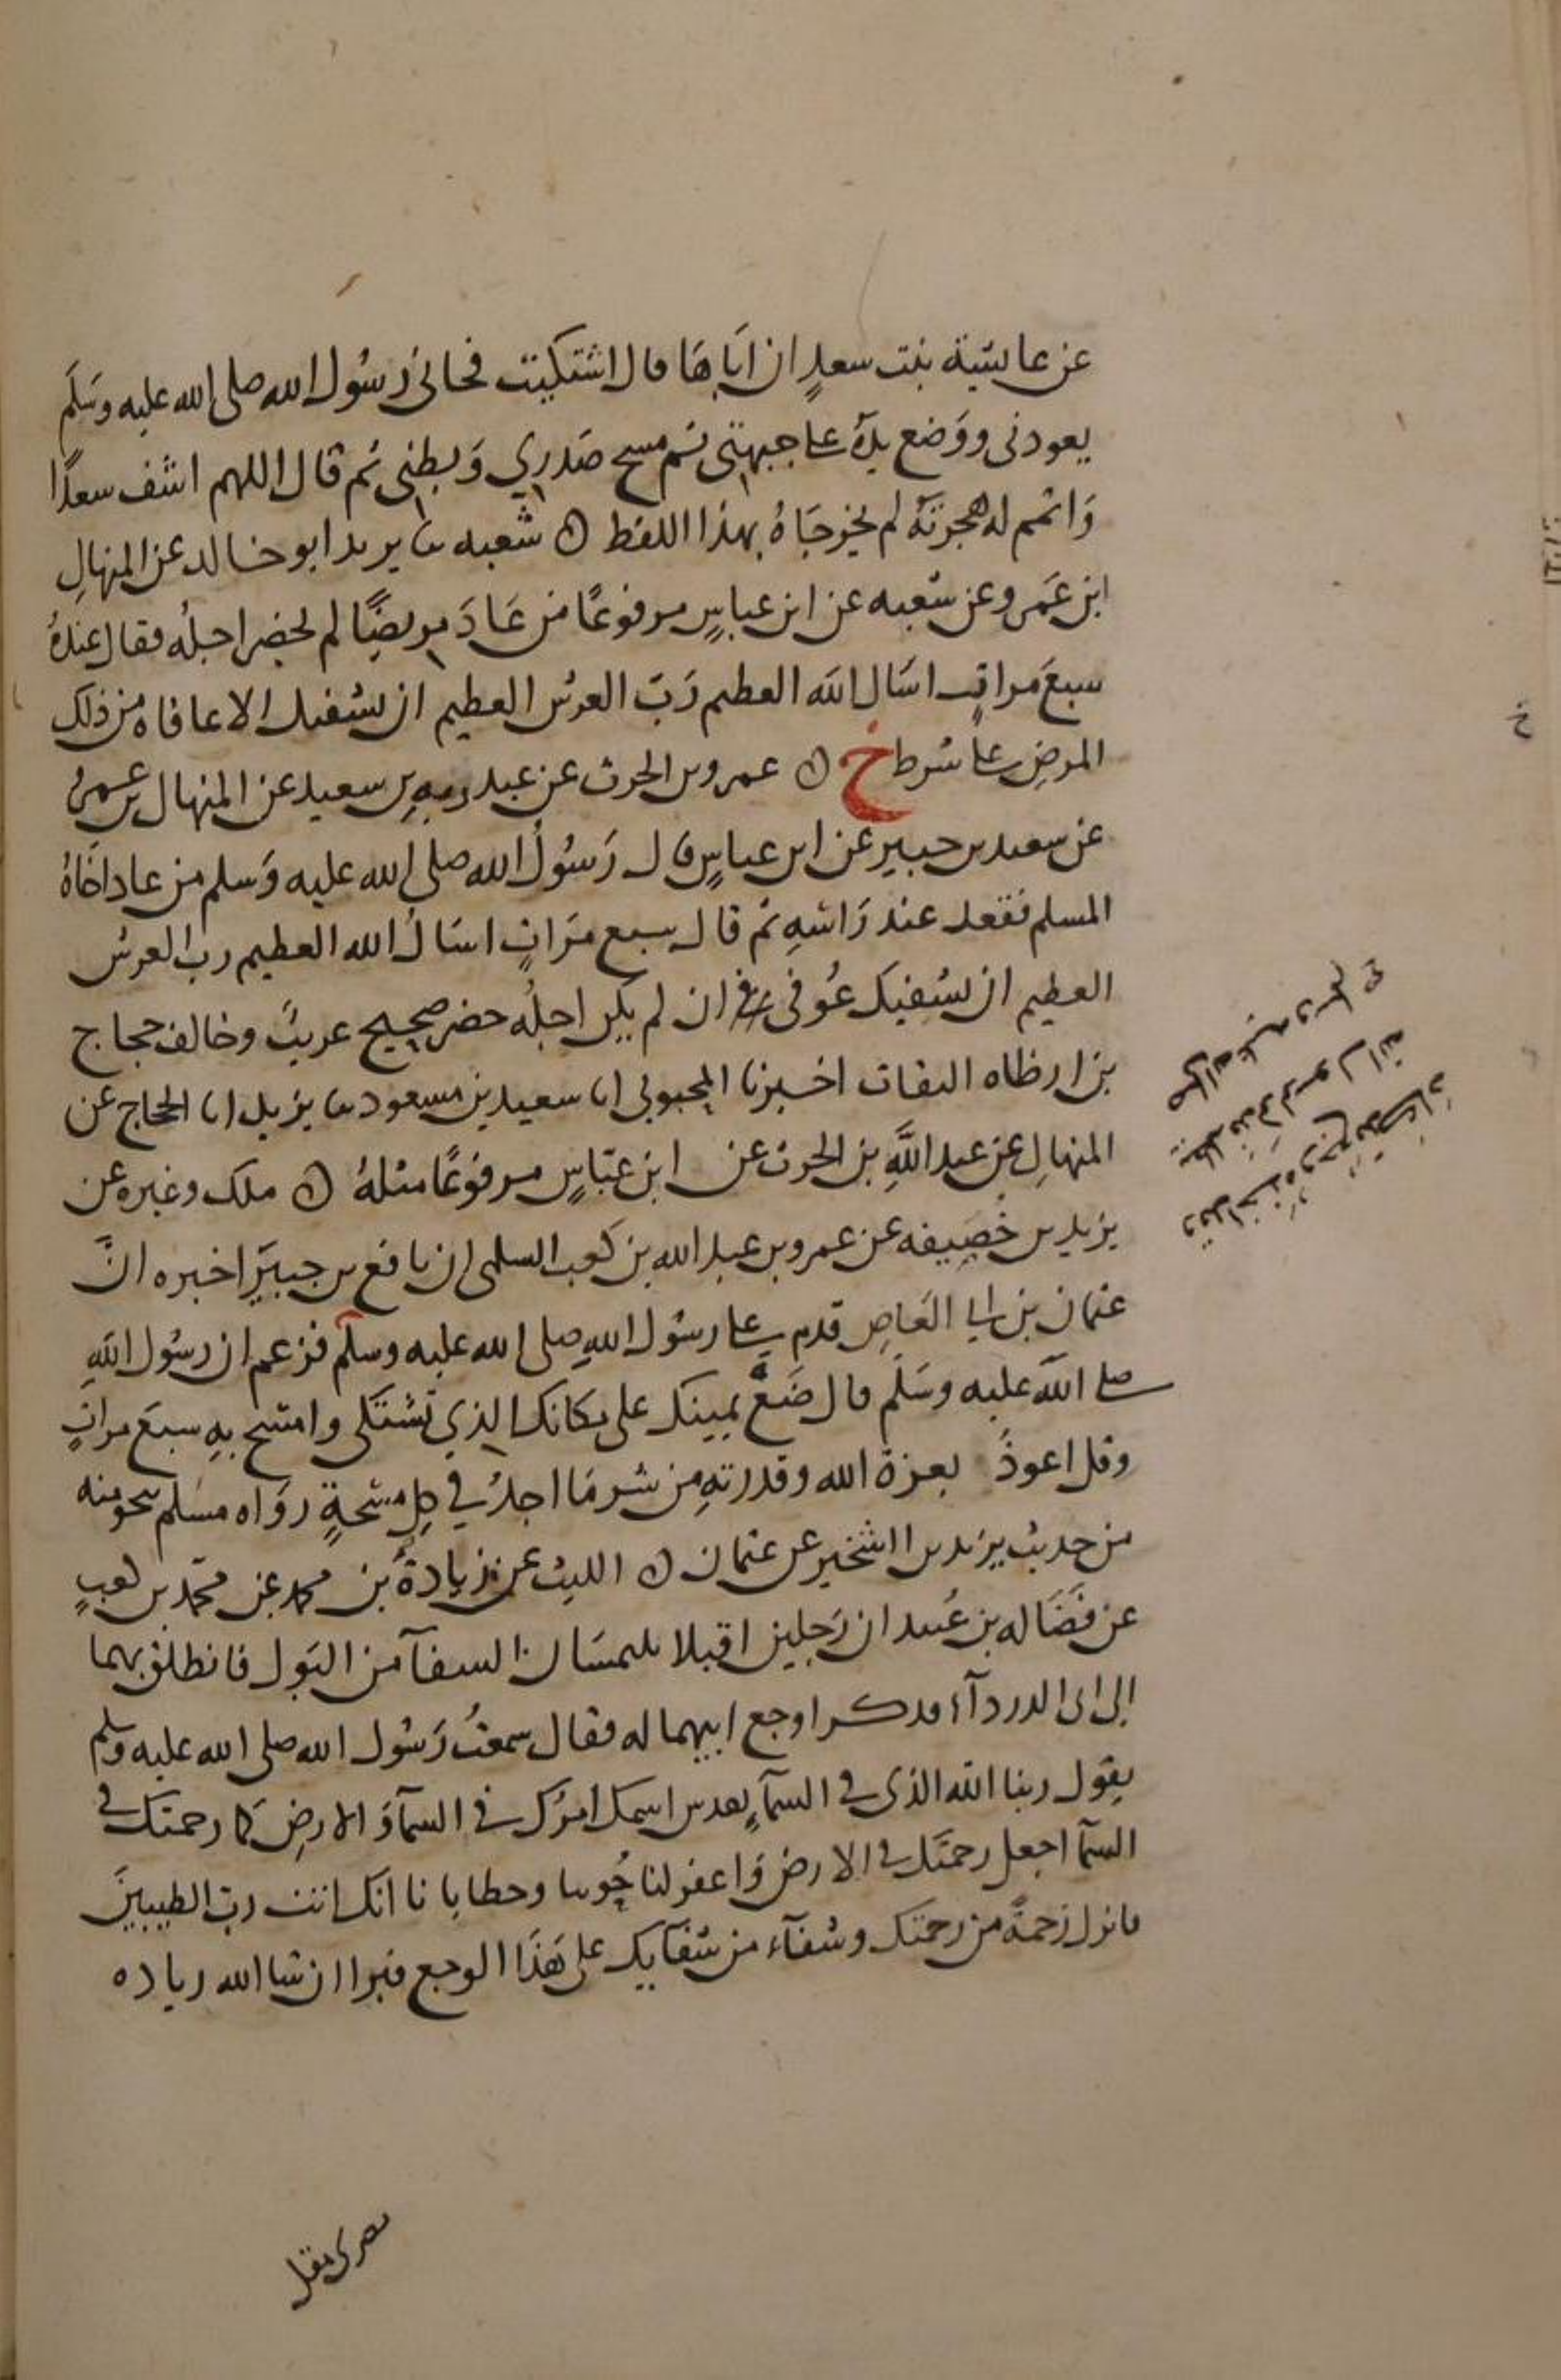 عن عايشة بنت سعدٍ ان اباها قال اشتكيت فجانى رسول الله صلى الله عليه وسلم
يعودنى ووضع يده على جبهتى ثم مسح صدري وبطنى ثم قال اللهم اشف سعدًا
واتمم له هجرته لم يخرجاه بهذا اللفظ ه شعبه ثنا يزيد ابو خالد عن المنهالِ
ابن عمرو عن سعيد عن ابن عباسٍ مرفوعًا من عاد مريضًا لم يحضر اجله فقال عنده
سبع مراتٍ اسال الله العظيم رب العرش العظيم ان يشفيك الا عافاه من ذلك
المرضِ على شرط خ ه عمرو بن الحرث عن عبد ربهِ بن سعيد عن المنهال بن عمرو
عن سعيد بن جبيرٍ عن ابن عباسٍ قال رسول الله صلى الله عليه وسلم من عاد اخاه
المسلم فقعد عند راسهِ ثم قال سبع مراتٍ اسال الله العظيم رب العرش
العظيم ان يشفيك عوفى ان لم يكن اجله حضر صحيح غريب وخالف حجاج
بن ارطاه الثقات اخبرنا المحبوبى انا سعيد بن مسعود ثنا يزيد انا الحجاج عن
المنهالِ عن عبد اللهِ بن الحرث عن ابن عباسٍ مرفوعًا مثله ه ملك وغيره عن
يزيد بن خُصيفه عن عمرو بن عبد الله بن كعب السلمى ان نافع بن جبير اخبره ان
عثمان بن ابي العاصِ قدم على رسول اللهِ صلى الله عليه وسلم فزعم ان رسول اللهِ
صلى الله عليه وسلم قال ضع يمينك على مكانك الذي تشتكى وامسح بهِ سبع مراتٍ
وقل اعوذُ بعزة الله وقدرتهِ من شر ما اجد في كل مسحةٍ رواه مسلم نحو منه
من حديث يزيد بن الشخير عن عثمان ه الليث عن زيادة بن محمد عن محمد بن كعبٍ
عن فضاله بن عُبيد ان رجلين اقبلا يلتمسان الشفآ من البول فانطلق بهما
الى ابى الدردآء فذكرا وجع ابيهما له فقال سمعتُ رسول الله صلى الله عليه وسلم
يقول ربنا الله الذى في السمآءِ تقدس اسمك امرك في السمآ والارضِ كما رحمتك في
السمآ اجعل رحمتك في الارض واغفر لنا حُوبنا وخطايانا انك انت رب الطيبين
فانزل رحمةً من رحمتك وشفآء من شفآيك على هذا الوجع فيبرا ان شا الله زياده